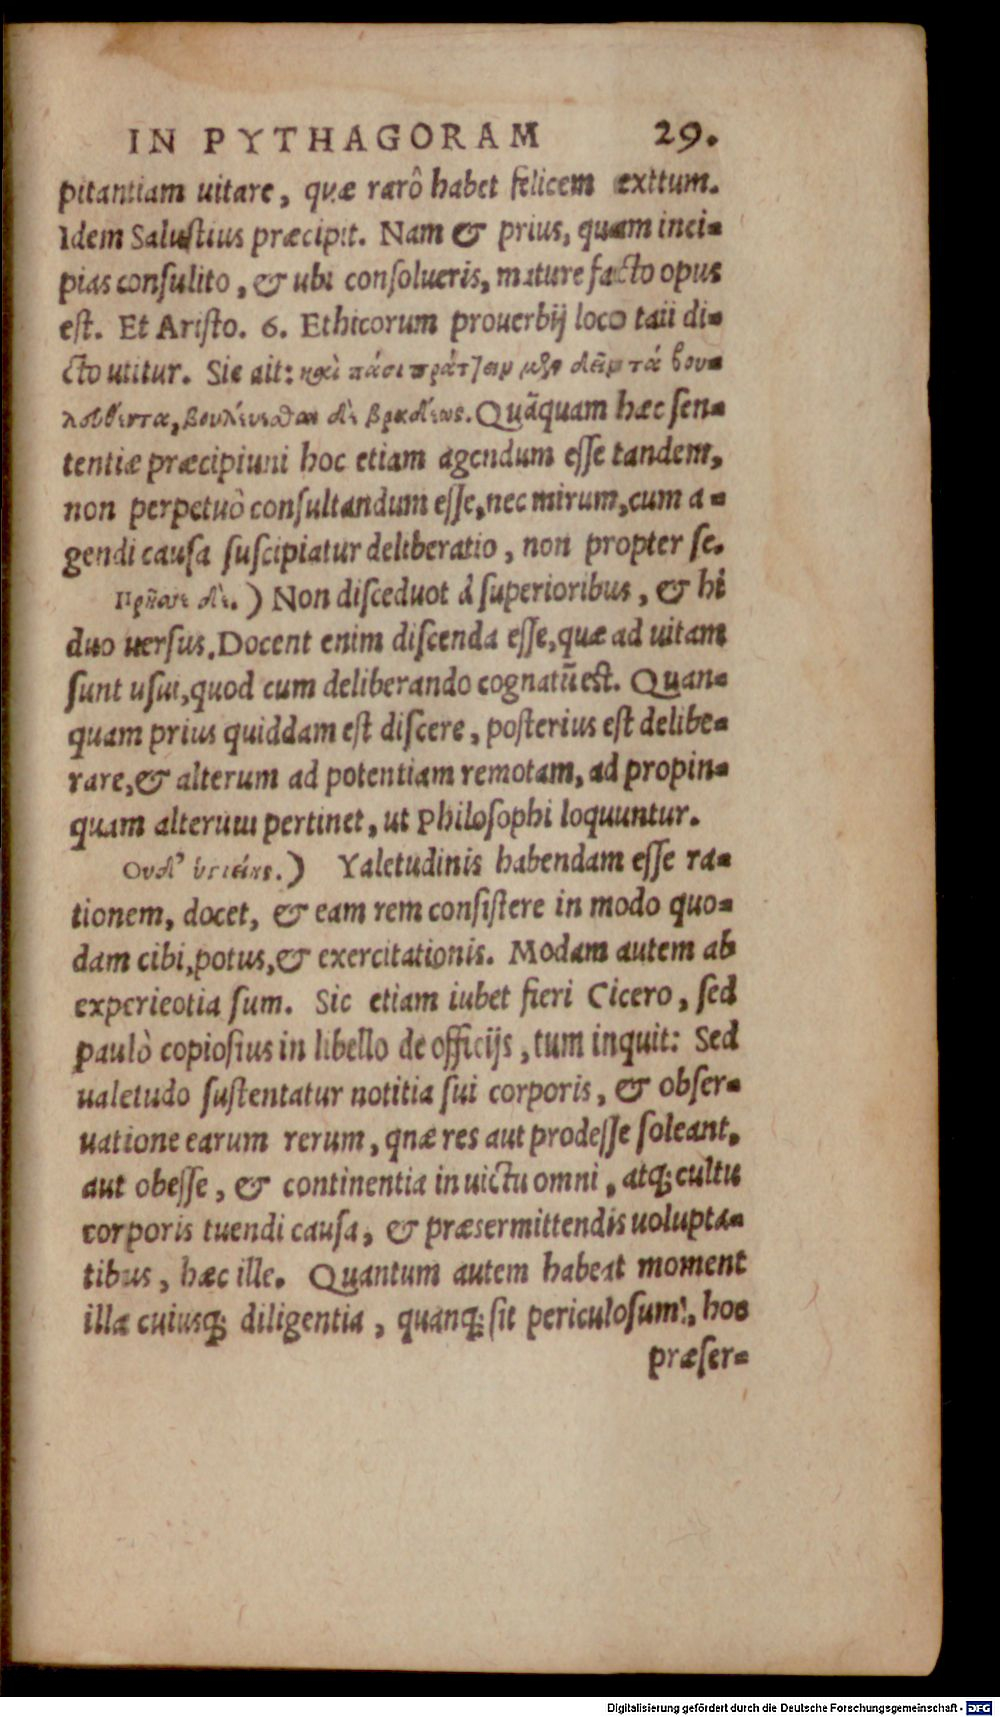 IN PYTHAGORAM 29.
pitantiam uitare, quæ rarô habet felicem exitum.
Idem Salustius præcipit. Nam & prius, quam inci-
pias consulito, & ubi consolueris, mature facto opus
est. Et Aristo. 6. Ethicorum prouerbij loco taii di-
cto utitur. Sic ait: καὶ πάσι πράτ]ειν μὲν δεῖν τά βου-
λευθέντα, βουλέυεσθαι δὲ βραδέως. Quãquam hæc sen-
tentiæ præcipiuni hoc etiam agendum esse tandem,
non perpetuò consultandum esse, nec mirum, cum a-
gendi causa suscipiatur deliberatio, non propter se.
Πρῆσσε δὲ.) Non disceduot à superioribus, & hi
duo uersus. Docent enim discenda esse, quæ ad uitam
sunt usui, quod cum deliberando cognatũ est. Quan-
quam prius quiddam est discere, posterius est delibe-
rare, & alterum ad potentiam remotam, ad propin-
quam alterum pertinet, ut Philosophi loquuntur.
Ουδ' ὑγιείης.) Yaletudinis habendam esse ra-
tionem, docet, & eam rem consistere in modo quo-
dam cibi, potus, & exercitationis. Modam autem ab
experieotia sum. Sic etiam iubet fieri Cicero, sed
paulò copiosius in libello de officijs, tum inquit: Sed
ualetudo sustentatur notitia sui corporis, & obser-
uatione earum rerum, qnæ res aut prodesse soleant,
aut obesse, & continentia in uictu omni, atq; cultu
corporis tuendi causa, & præsermittendis uolupta-
tibus, hæc ille. Quantum autem habeat moment
illa cuiusq; diligentia, quanq; sit periculosum!, hoc
præser-
Digitalisierung gefördert durch die Deutsche Forschungsgemeinschaft - DFG